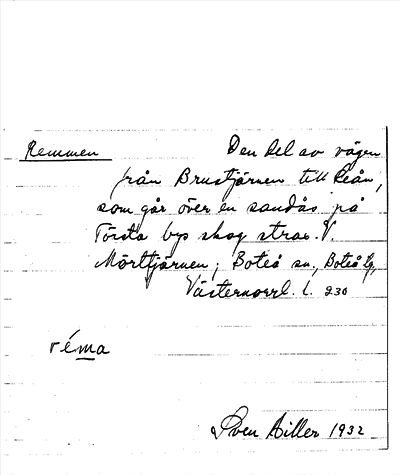 Remmen Den del av vägen
från Brustjärnen till Reån,
som går över en sandås på
Törsta bys skog strax V.
Mörttjärnen; Boteå sn, Boteå tg,
Västernorrl. l. 230
réma
Sven Hiller 1932